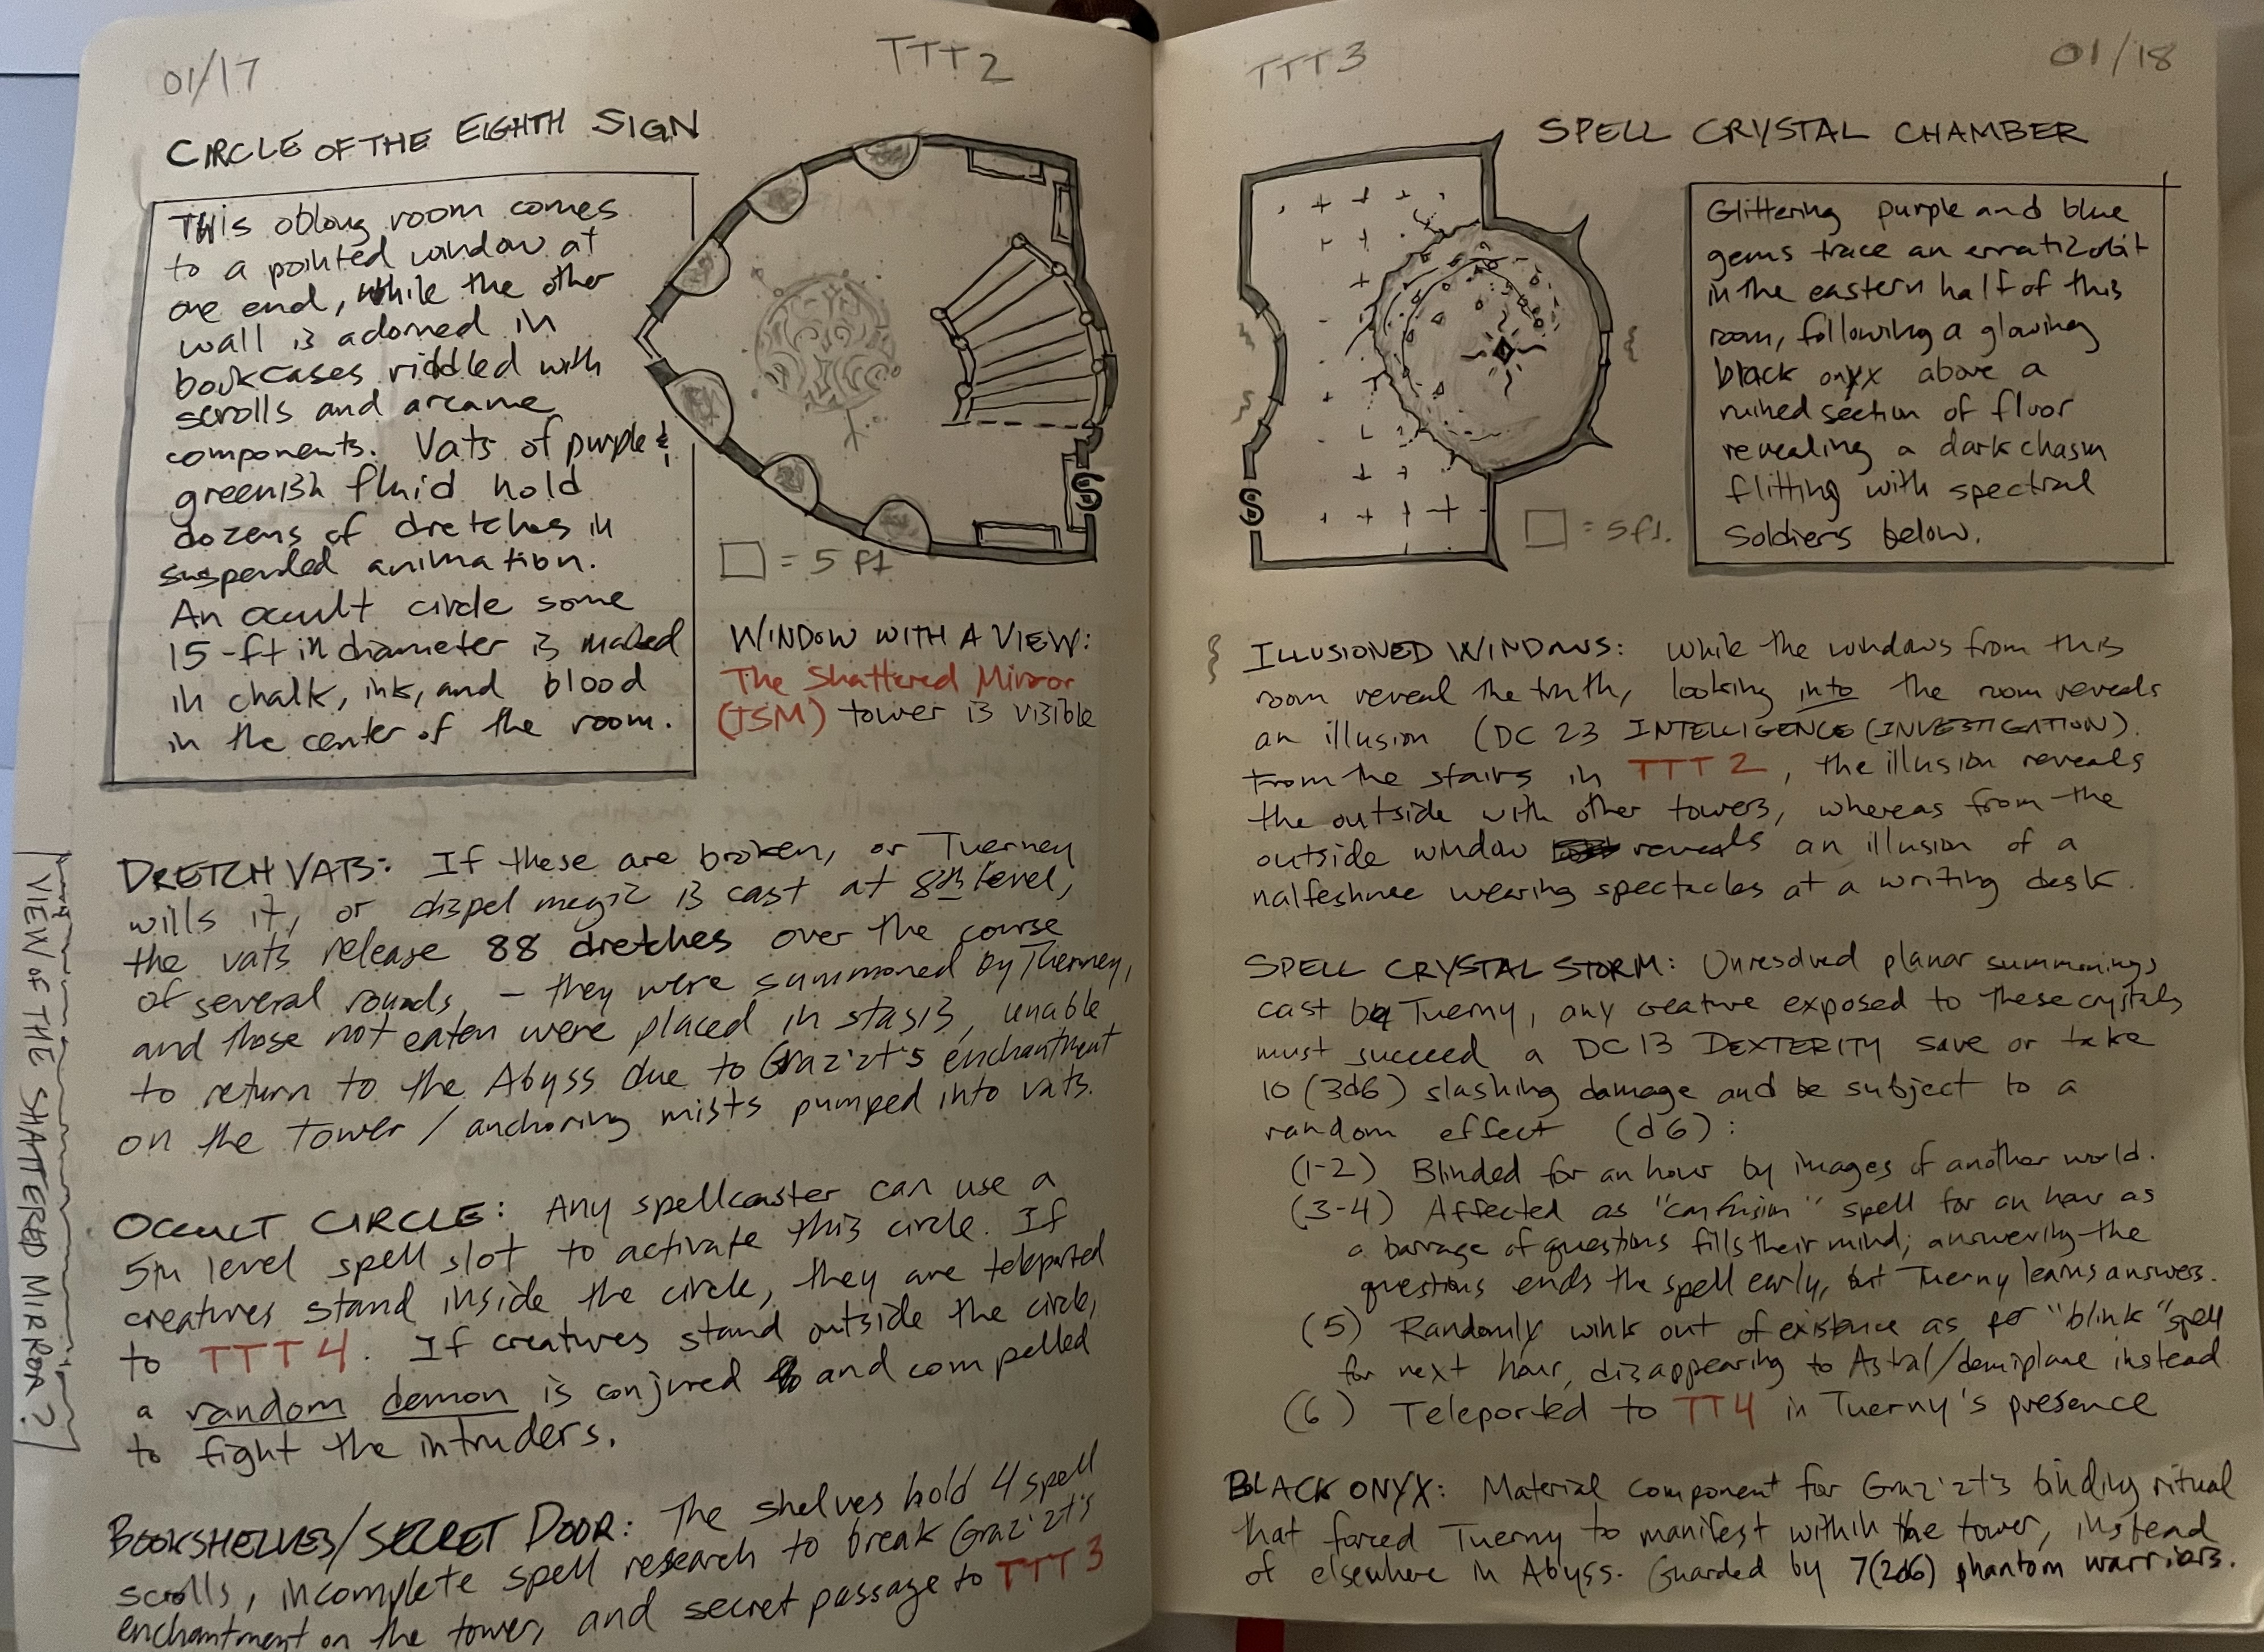 01/17
TTT 2
CIRCLE OF THE EIGHTH SIGN
This oblong room comes
to a pointed window at
one end, while the other
wall is adorned in
bookcases riddled with
scrolls and arcane
components. Vats of purple &
greenish fluid hold
dozens of dretches in
suspended animation.
An occult circle some
15-ft in diameter is marked
in chalk, ink, and blood
in the center of the room.
S
= 5 ft
WINDOW WITH A VIEW:
The Shattered Mirror
(TSM) tower is visible
DRETCH VATS: If these are broken, or Tuerney
wills it, or dispel magic is cast at 8th level,
the vats release 88 dretches over the course
of several rounds – they were summoned by Tuerney,
and those not eaten were placed in stasis, unable
to return to the Abyss due to Graz'zt's enchantment
on the tower / anchoring mists pumped into vats.
OCCULT CIRCLE: Any spellcaster can use a
5th level spell slot to activate this circle. If
creatures stand inside the circle, they are teleported
to TTT 4. If creatures stand outside the circle,
a random demon is conjured and compelled
to fight the intruders.
BOOKSHELVES/SECRET DOOR: The shelves hold 4 spell
scrolls, incomplete spell research to break Graz'zt's
enchantment on the tower, and secret passage to TTT 3
VIEW OF THE SHATTERED MIRROR?
TTT 3
01/18
SPELL CRYSTAL CHAMBER
S
= 5 ft.
Glittering purple and blue
gems trace an erratic orbit
in the eastern half of this
room, following a glowing
black onyx above a
ruined section of floor
revealing a dark chasm
flitting with spectral
soldiers below.
ILLUSIONED WINDOWS: While the windows from this
room reveal the truth, looking into the room reveals
an illusion (DC 23 INTELLIGENCE (INVESTIGATION).
From the stairs in TTT 2, the illusion reveals
the outside with other towers, whereas from the
outside window reveals an illusion of a
nalfeshnee wearing spectacles at a writing desk.
SPELL CRYSTAL STORM: Unresolved planar summonings
cast by Tuerny, any creature exposed to these crystals
must succeed a DC 13 DEXTERITY save or take
10 (3d6) slashing damage and be subject to a
random effect (d6):
(1-2) Blinded for an hour by images of another world.
(3-4) Affected as "confusion" spell for an hour as
a barrage of questions fills their mind; answering the
questions ends the spell early, but Tuerny learns answers.
(5) Randomly wink out of existence as per "blink" spell
for next hour, disappearing to Astral/demiplane instead
(6) Teleported to TT4 in Tuerny's presence
BLACK ONYX: Material component for Graz'zt's binding ritual
that forced Tuerny to manifest within the tower, instead
of elsewhere in Abyss. Guarded by 7(2d6) phantom warriors.